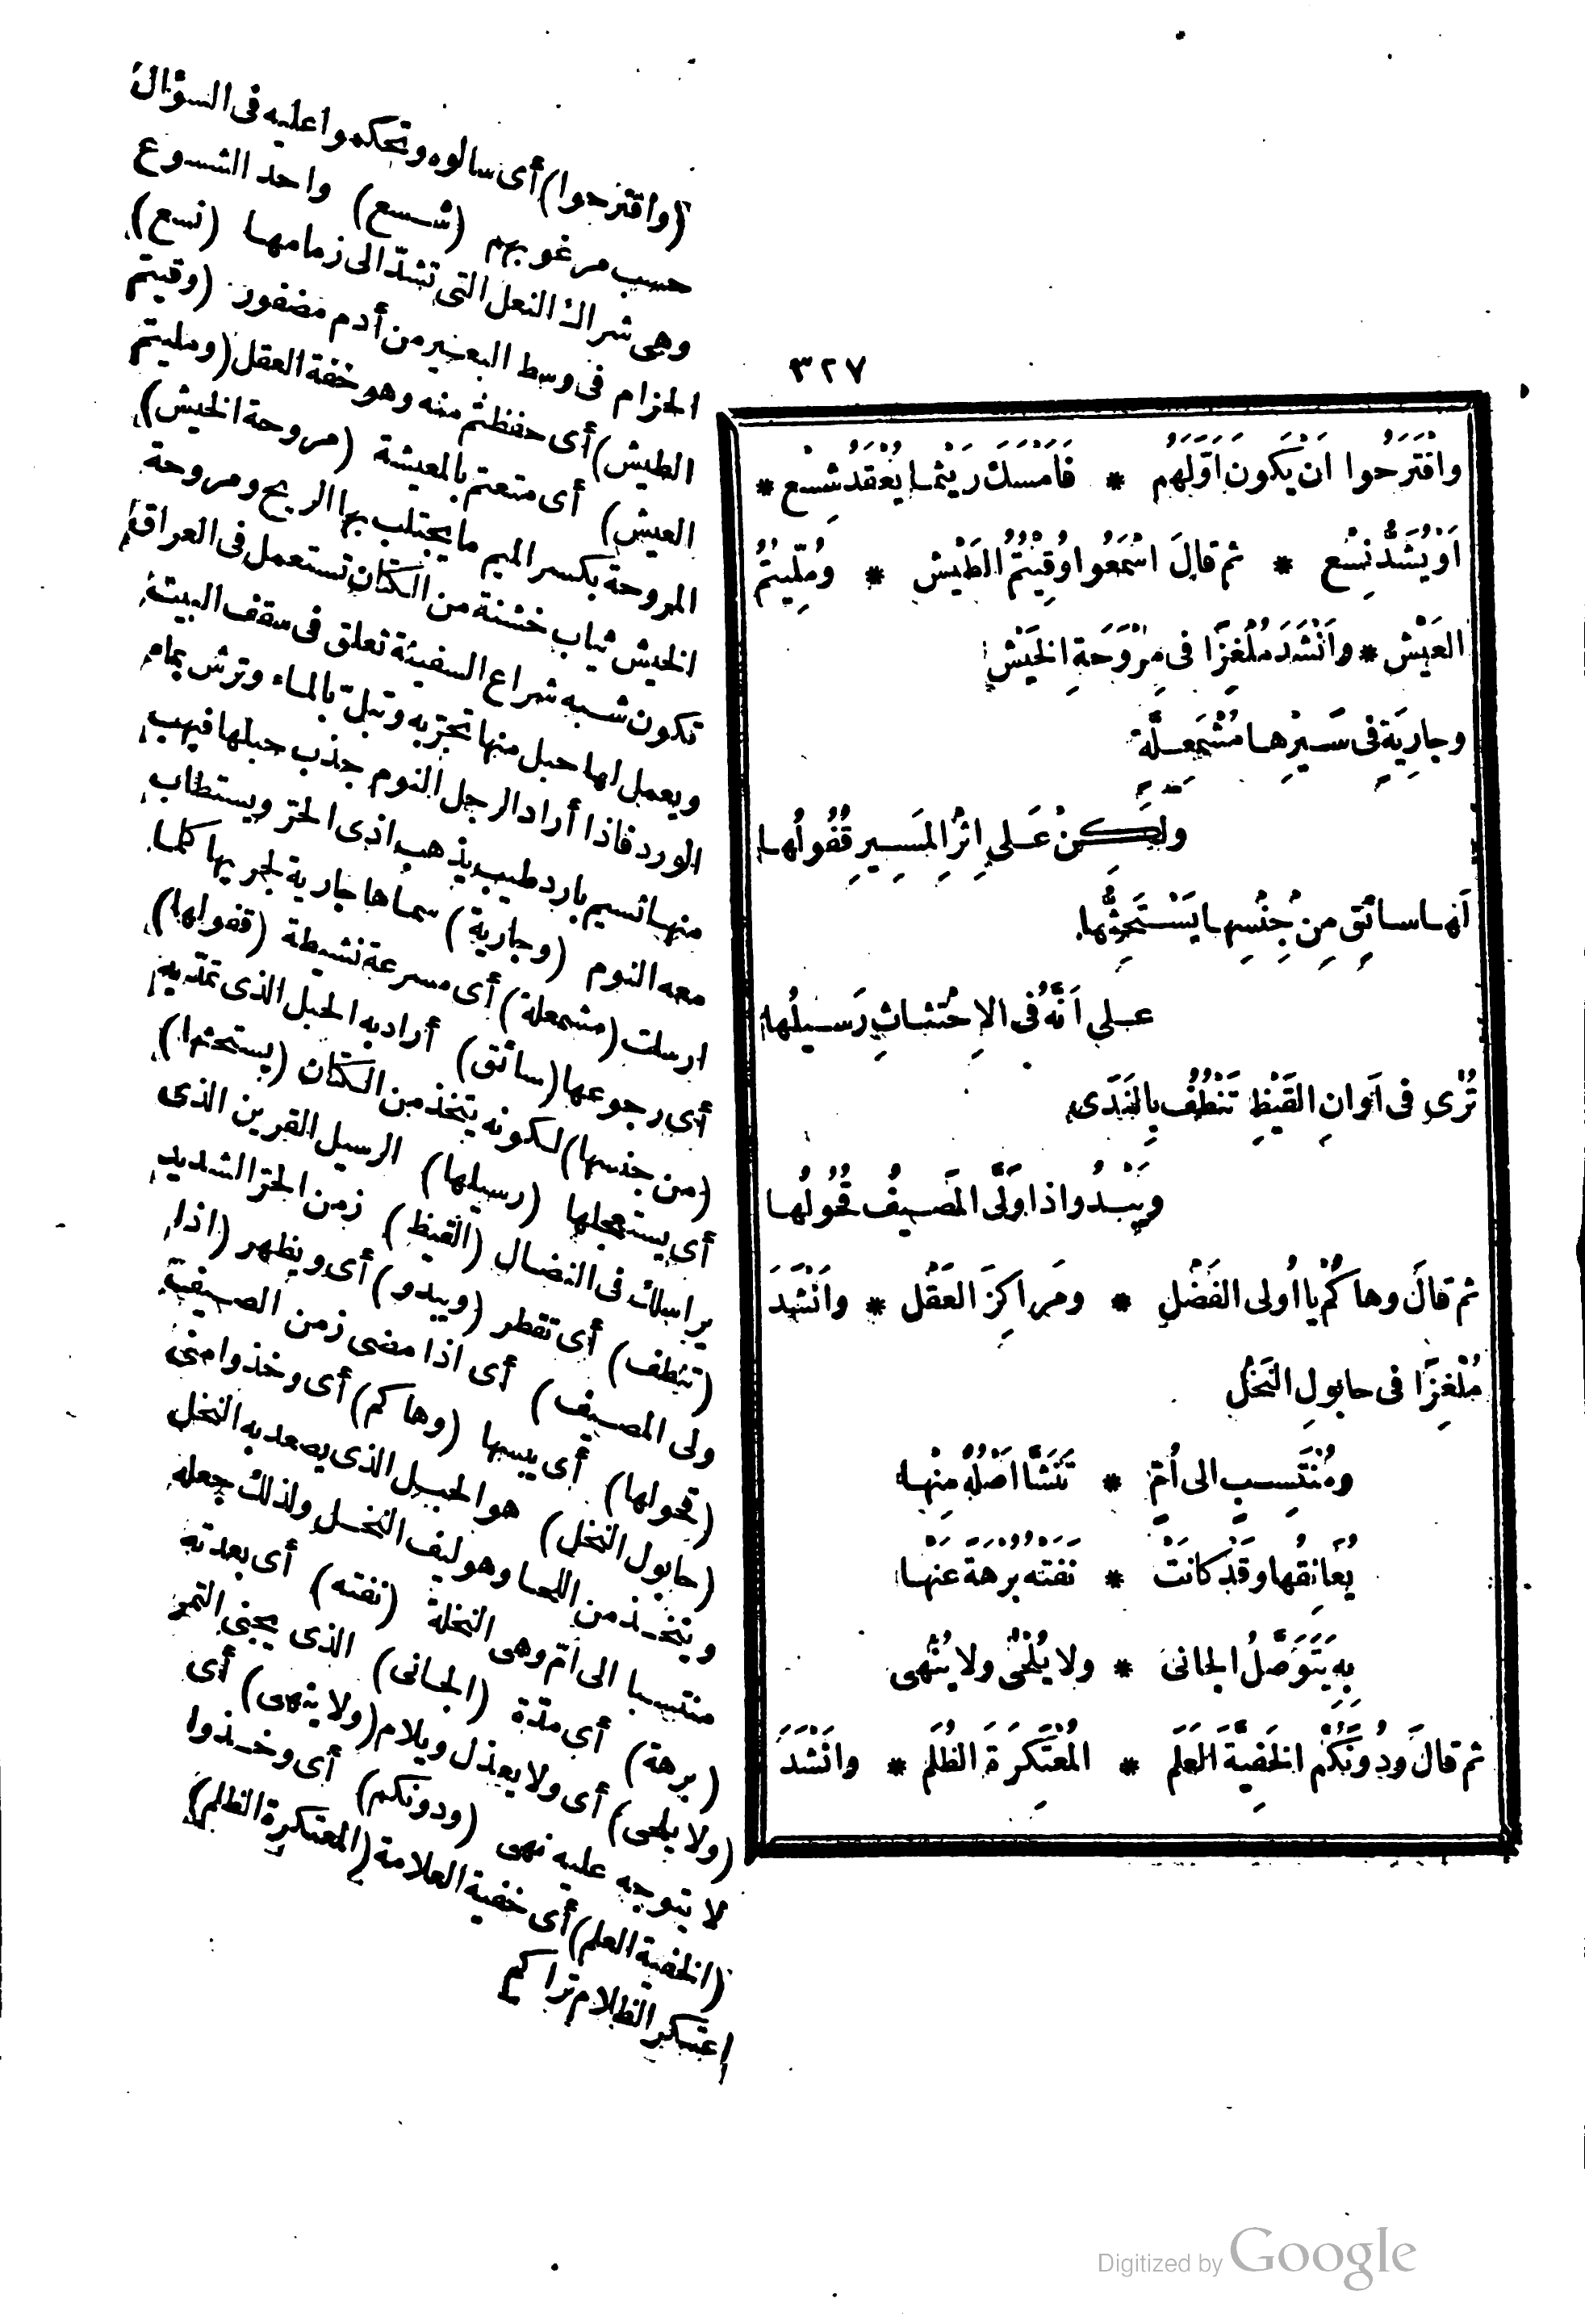 ٣٢٧
واقْتَرَحُوا اَنْ يَكونَ اَوَّلَهُم * فَاَمْسَكَ رَيْثَما يُعْقَدُ شِسْع *
اَوْ يُشَدُّ نِسْع * ثم قالَ اسْمَعُوا وُقِيتُمُ الطَيْش * ومُلِّيتُمُ
العَيْش * واَنْشَدَ مُلْغِزًا فى مِرْوَحَةِ الخَيْش
وجارِيَةٍ فى سَيْرِها مُشْمَعِلَّةٍ
ولكِنْ عَلى اِثْرِ المَسِيرِ قُفُولُها
لَها سائِق مِن جِنْسِها يَسْتَحِثُّها
عَلى اَنَّهُ فى الاِحْتِثاثِ رَسِيلُها
تُرَى فى اَوانِ القَيْظِ تَنْطُفُ بِالنَدَى
ويَبْدُو اذا وَلَّى المَصِيفُ قُحُولُها
ثم قالَ وهاكُمْ يا اُولى الفَضْل * ومَراكِزَ العَقْل * واَنْشَدَ
مُلْغِزًا فى حابولِ النَخْل
ومُنْتَسِبٍ الى اُمٍّ * تَنَشَّا اَصْلُهُ مِنْها
يُعانِقُها وقَدْ كانَتْ * نَفَتْهُ بُرْهَةً عَنْها
بِهِ يَتَوَصَّلُ الجانى * ولا يُلْحَى ولا يُنْهَى
ثم قالَ ودُونَكُم الخَفِيَّةَ العَلَم * المُعْتَكِرَةَ الظُلَم * واَنْشَدَ
(واقترحوا) أى سالوه وتحكموا عليه فى السؤال
حسب مرغوبهم (شسع) واحد الشسوع
وهى شراك النعل التى تشدّ الى زمامها (نسع)
الحزام فى وسط البعير من أدم مضفور (وقيتم
الطيش) أى حفظتم منه وهو خفة العقل (ومليتم
العيش) أى متعتم بالمعيشة (مروحة الخيش)
المروحة بكسر الميم ما يجتلب بها الريح ومروحة
الخيش ثياب خشنة من الكتان تستعمل فى العراق
تكون شبه شراع السفينة تعلق فى سقف البيت
ويعمل لها حبل منها تجرّ به وتبلّ بالماء وترش بماء
الورد فاذا أراد الرجل النوم جذب حبلها فيهب
منها نسيم بارد طيب يذهب اذى الحرّ ويستطاب
معه النوم (وجارية) سماها جارية لجريها كلما
ارسلت (مشمعلة) أى مسرعة نشيطة (قفولها)
أى رجوعها (سائق) أراد به الحبل الذى تمدّ به
(من جنسها) لكونه يتخذ من الكتان (يستحثها)
أى يستعجلها (رسيلها) الرسيل القرين الذى
يراسلك فى النضال (القيظ) زمن الحرّ الشديد
(تنطف) أى تقطر (ويبدو) أى ويظهر (اذا
ولى المصيف) أى اذا مضى زمن الصيف
(قحولها) أى يبسها (وهاكم) أى وخذوا منى
(حابول النخل) هو الحبل الذى يصعد به النخل
ويتخذ من اللحا وهو ليف النخل ولذلك جعله
منتسبا الى امّ وهى النخلة (نفته) أى بعدته
(برهة) أى مدّة (الجانى) الذى يجنى التمر
(ولا يلحى) أى ولا يعذل ويلام (ولا ينهى) أى
لا يتوجه عليه نهى (ودونكم) أى وخذوا
(الخفية العلم) أى خفية العلامة (المعتكرة الظلم)
اعتكر الظلام تراكم
Digitized by Google